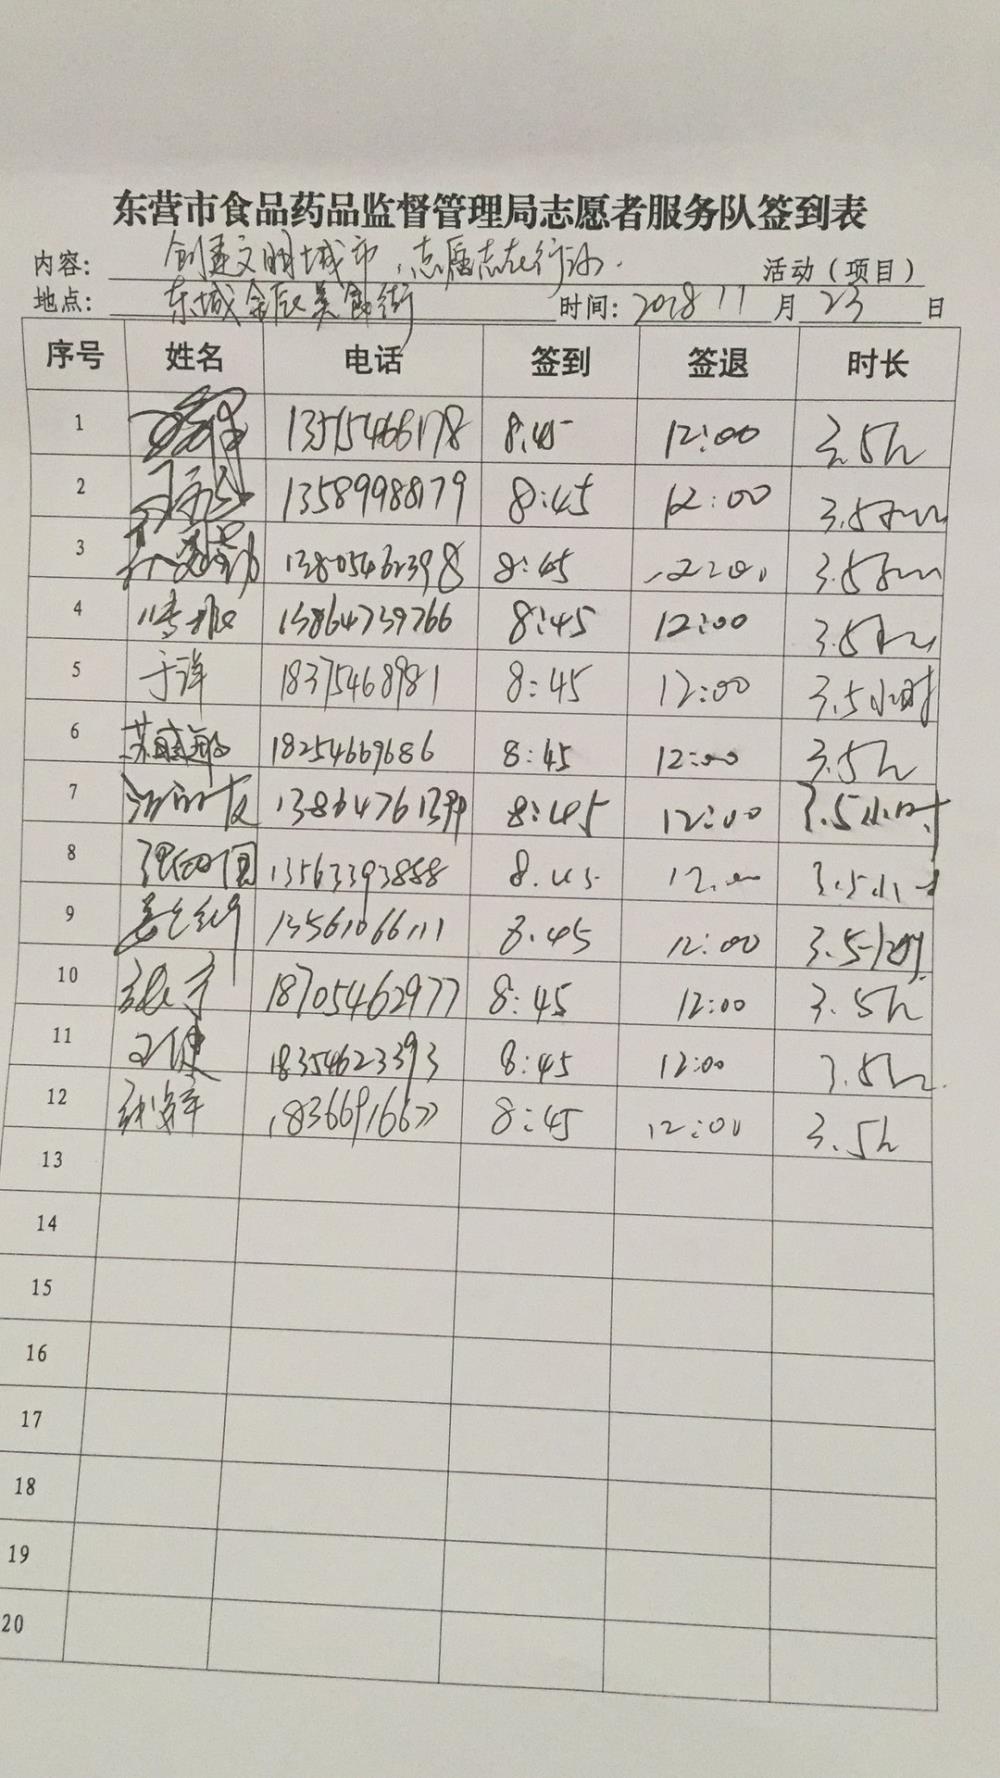 东营市食品药品监督管理局志愿者服务队签到表
内容: 创建文明城市,志愿志在行动. 活动（项目）
地点: 东城金辰美食街 时间: 2018 11 月 23 日
序号 姓名 电话 签到 签退 时长
1 13515466178 8:45 12:00 3.5h
2 13589988179 8:45 12:00 3.5小时
3 13805462398 8:45 12:00 3.5小时
4 13864739766 8:45 12:00 3.5小时
5 于洋 18375468981 8:45 12:00 3.5小时
6 苏 18254669686 8:45 12:00 3.5h
7 13864761399 8:45 12:00 3.5小时
8 13563393888 8:45 12:00 3.5小时
9 13561066111 8.45 12:00 3.5小时
10 张宁 18705462977 8:45 12:00 3.5h
11 王健 18354623393 8:45 12:00 3.5h
12 8:45 12:00 3.5h
13
14
15
16
17
18
19
20